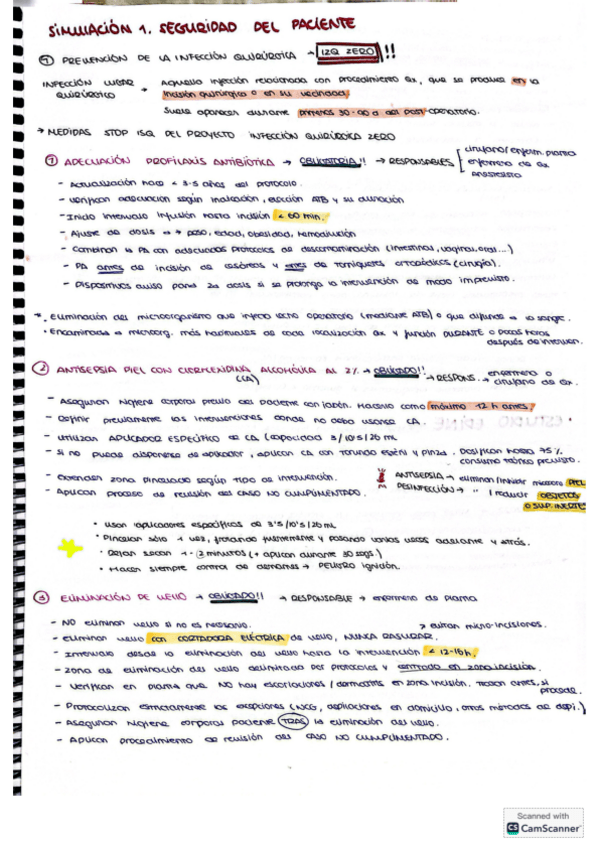 SIMULACIÓN 1. SEGURIDAD DEL PACIENTE
① PREVENCIÓN DE LA INFECCIÓN QUIRÚRGICA → IZQ ZERO !!
INFECCIÓN LUGAR QUIRÚRGICO → Aquella infección relacionada con procedimiento Qx, que se produce en la
incisión quirúrgica o en su vecindad.
Suele aparecer durante primeros 30-90 d del post-operatorio.
→ MEDIDAS STOP ISQ DEL PROYECTO INFECCIÓN QUIRÚRGICA ZERO
① ADECUACIÓN PROFILAXIS ANTIBIÓTICA → OBLIGATORIA!! → RESPONSABLES
cirujano/enferm. planta
enfermero de Qx
anestesista
- Actualización hace < 3-5 años del protocolo.
- Verificar adecuación según indicación, elección ATB y su duración
- Inicio intervalo infusión hasta incisión < 60 min.
- Ajuste de dosis → peso, edad, obesidad, hemodilución
- Combinar la PA con adecuados protocolos de descontaminación (intestinos, vaginas, oral...)
- PA antes de incisión de cesáreas y antes de torniquetes ortopédicos (cirugía).
- Dispositivos aviso para 2a dosis si se prolonga la intervención de modo imprevisto.
• Eliminación del microorganismo que infecta lecho operatorio (mediante ATB) o que difunde → la sangre.
• Encaminada → microorg. más habituales de cada localización Qx y función DURANTE o pocas horas
después de interven.
② ANTISEPSIA PIEL CON CLORHEXIDINA ALCOHÓLICA AL 2% → OBLIGADO!! → RESPONS.
(CA)
enfermero o
cirujano de Qx.
- Asegurar higiene corporal previa del paciente con jabón. Hacerlo como máximo 12 h antes.
- Definir previamente las intervenciones donde no deba usarse CA.
- Utilizar APLICADOR ESPECÍFICO de CA (capacidad 3/10'5/26 mL
- Si no puede disponerse de aplicador, aplicar CA con torunda estéril y pinza. Dosificar hasta 75%
consumo teórico previsto.
- Extender zona pincelado según tipo de intervención.
- Aplicar proceso de revisión del CASO NO CUMPLIMENTADO.
ANTISEPSIA → eliminar/inhibir microorg PIEL
DESINFECCIÓN → " / reducir OBJETOS
O SUP. INERTE
• Usar aplicadores específicos de 3'5/10'5/26 mL
• Pincelar sólo 1 vez, frotando fuertemente y pasando varias veces adelante y atrás.
• Dejar secar +- 2 minutos (+ aplicar durante 30 segs.)
• Hacer siempre control de derrames → PELIGRO ignición.
③ ELIMINACIÓN DE VELLO → OBLIGADO!! → RESPONSABLE → enfermero de planta
- NO eliminar vello si no es necesario.
→ evitan micro-incisiones.
- Eliminar vello con CORTADORA ELÉCTRICA de vello, NUNCA RASURAR.
- Intervalo desde la eliminación del vello hasta la intervención < 12-16h.
- Zona de eliminación del vello delimitada por protocolos y centrada en zona incisión.
- Verificar en planta que NO hay escoriaciones / dermatitis en zona incisión. Tratar antes, si
procede
- Protocolizar estrictamente las excepciones (NCG, depilaciones en domicilio, otros métodos de depi.)
- Asegurar higiene corporal paciente TRAS la eliminación del vello.
- Aplicar procedimiento de revisión del CASO NO CUMPLIMENTADO.
Scanned with
CS CamScanner